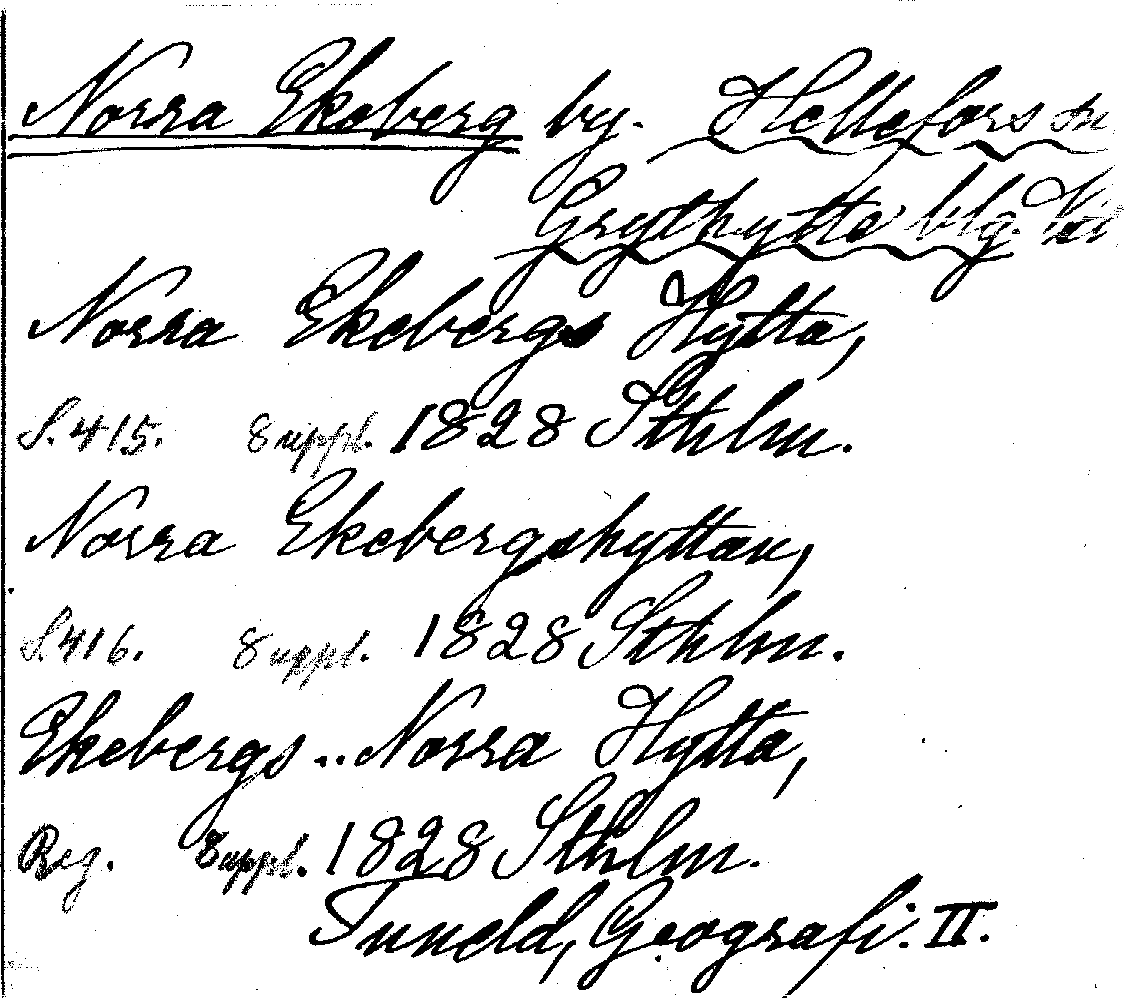 Norra Ekeberg by. Hellefors sn
Grythytte blg.
Norra Ekebergs Hytta,
S. 415. Suppl. 1828 Sthlm.
Norra Ekebergshyttan,
S. 416. Suppl. 1828 Sthlm.
Ekebergs .. Norra Hytta,
Reg. Suppl. 1828 Sthlm.
Tuneld, Geografi. II.